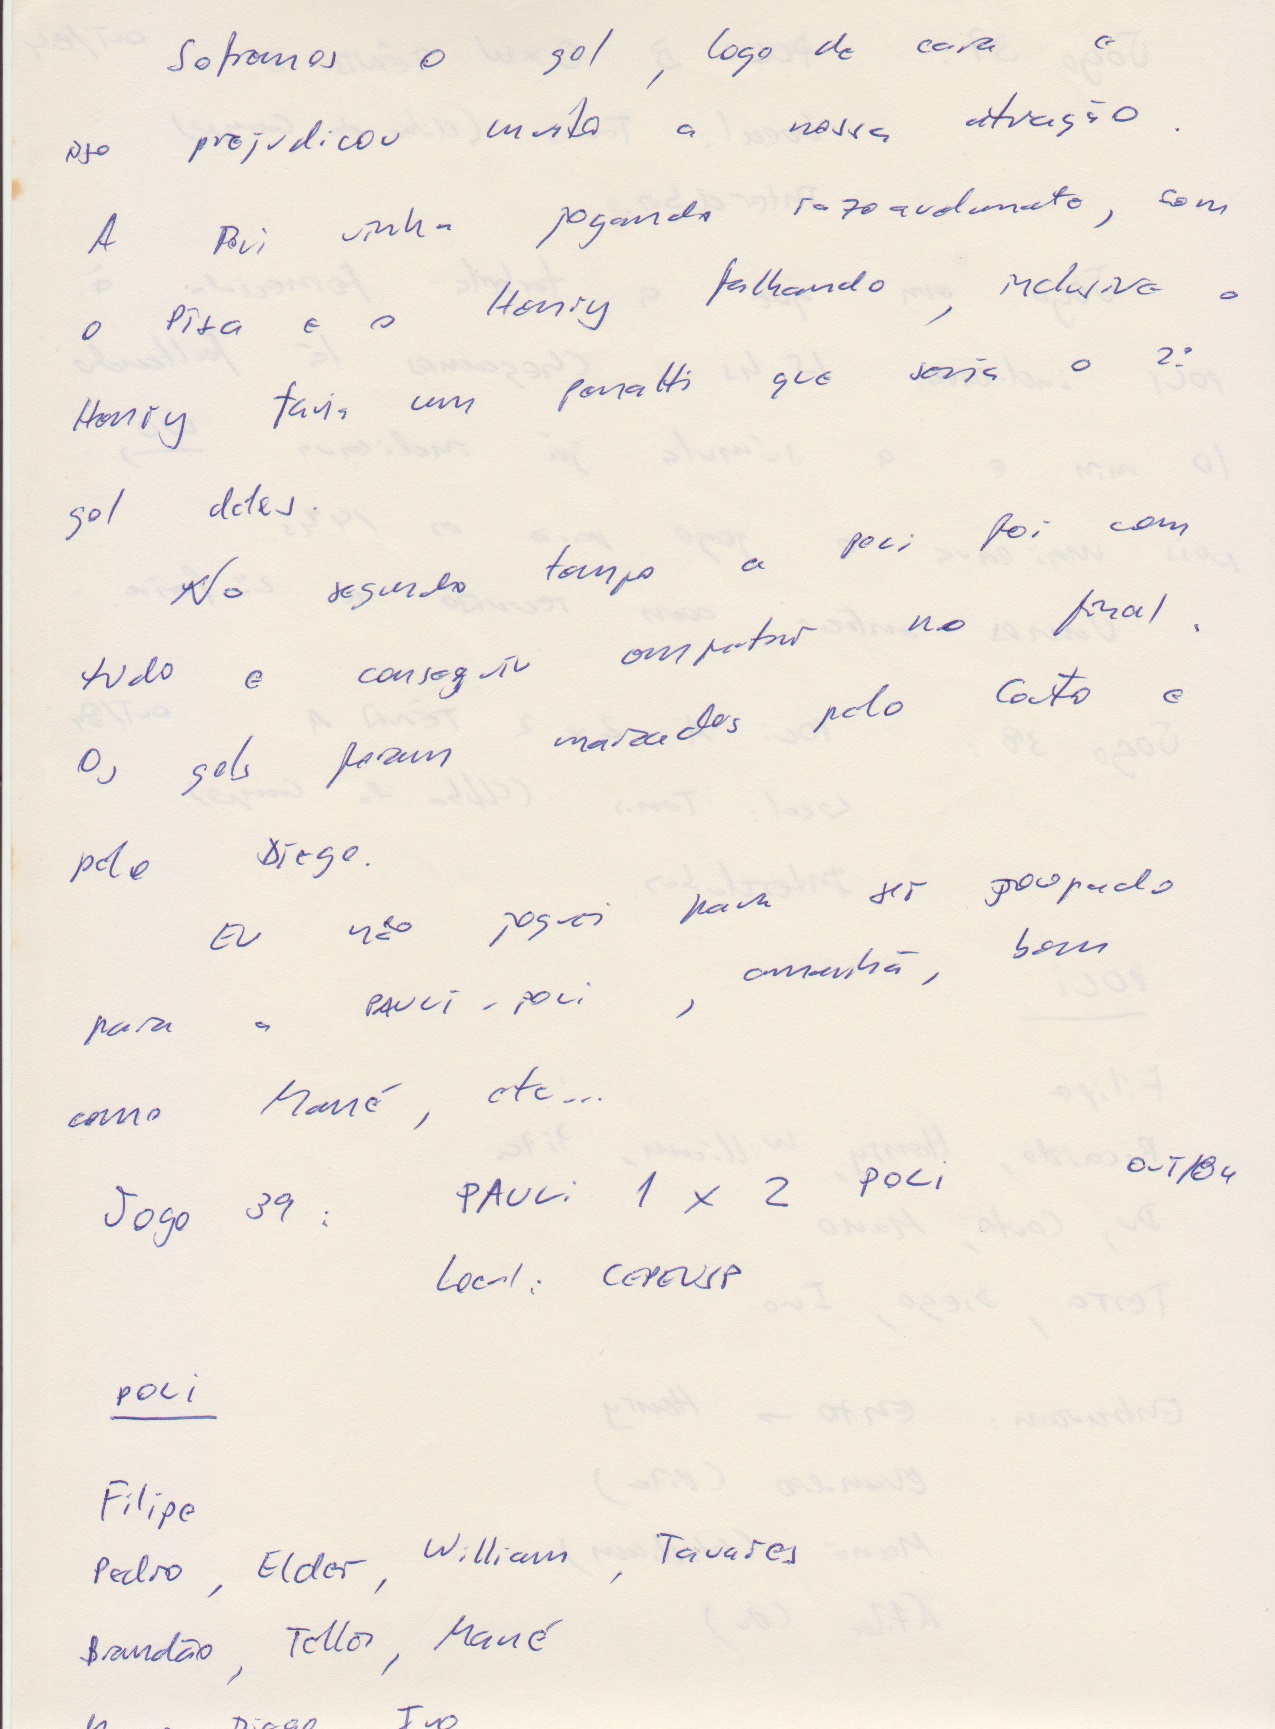 Sofremos o gol, logo de cara e
isso prejudicou muito a nossa atuação.
A Poli vinha jogando razoavelmente, com
o Pisa e o Henry falhando, inclusive o
Henry faria um penalti que seria o 2º
gol deles.
No segundo tempo a poli foi com
tudo e conseguiu empatar no final.
Os gols foram marcados pelo Couto e
pelo Diego.
Eu não joguei para ser poupado
para a PAULI-POLI, amanhã, bem
como Mané, etc...
Jogo 39: PAULI 1 x 2 POLI OUT/84
Local: CEPEUSP
POLI
Filipe
Pedro, Elder, William, Tavares
Brandão, Tellor, Mané
Diego Ivo